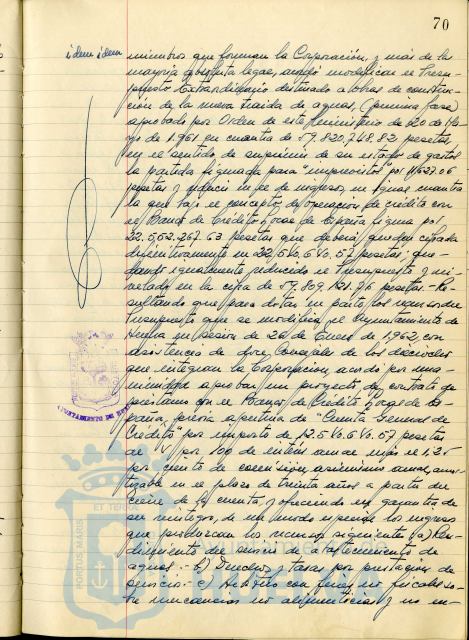 70
idem idem
miembros que forman la Corporación, y más de la
mayoría absoluta legal, acordó modificar el Presu-
puesto Extraordinario destinado a obras de construc-
ción de la nueva traida de aguas, (primera fase)
aprobado por Orden de este Ministerio de 20 de
de 1.961 en cuantía de 59.820.748.82 pesetas,
en el sentido de suprimir de su estado de gastos
la partida figurada para "imprevistos" por
pesetas y reducir en el de ingresos, en igual cuantía
la que bajo el concepto de operación de crédito con
el Banco de Crédito Local de España figura por
22.552.267.63 pesetas que deberá quedar cifrada
definitivamente en pesetas; que-
dando igualmente reducido el Presupuesto y ni-
velado en la cifra de 59.809.121.76 pesetas.- Re-
sultando que para dotar en parte, los recursos del
Presupuesto que se modifica, el Ayuntamiento de
Huelva en sesión de 26 de Enero de 1,962, con
asistencia de doce Concejales de los dieciocho
que integran la Corporación, acordó por una-
nimidad aprobar un proyecto de contrato de
préstamo con el Banco de Crédito Local de Es-
paña, previa apertura de "Cuenta General de
Crédito" por importe de pesetas
al por 100 de interés anual más el 1,25
por ciento de comisión, asimismo anual, amor-
tizable en el plazo de treinta años a partir del
cierre de la cuenta, y ofreciendo en garantía de
su reintegro, de un modo especial los ingresos
que produzcan los recursos siguientes: a) Ren-
dimiento del servicio de abastecimiento de
aguas.- b) Derechos y tasas por prestación de
servicio.- c) Arbitrio con fines no fiscales so-
bre mercancías no alimenticias y no en-
AYUNTAMIENTO DE
PORTUS MARIS
ET TERRÆ
HUELVA